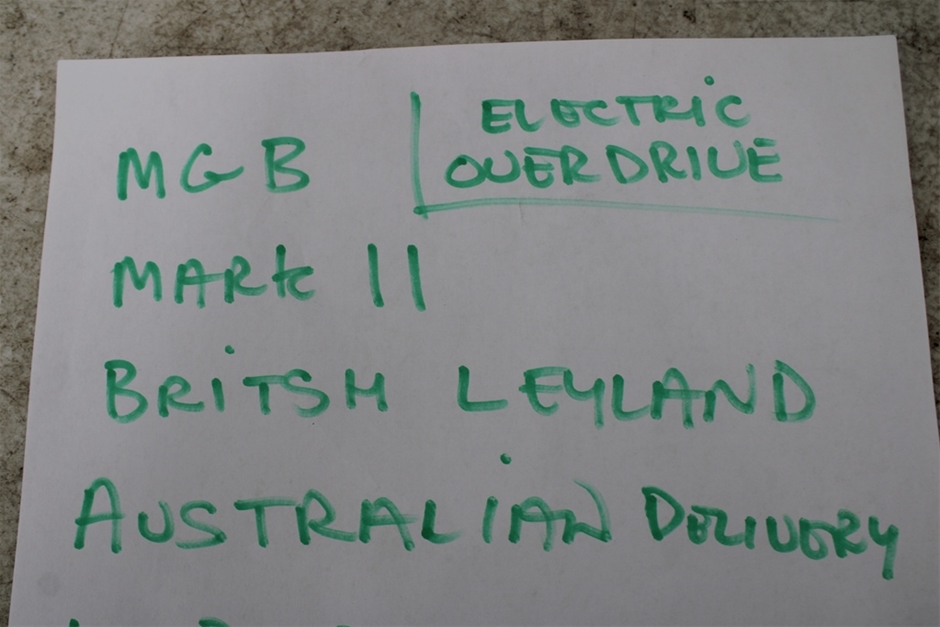 MGB
ELECTRIC
OVERDRIVE
MARK II
BRITSH LEYLAND
AUSTRALIAN DELIVERY